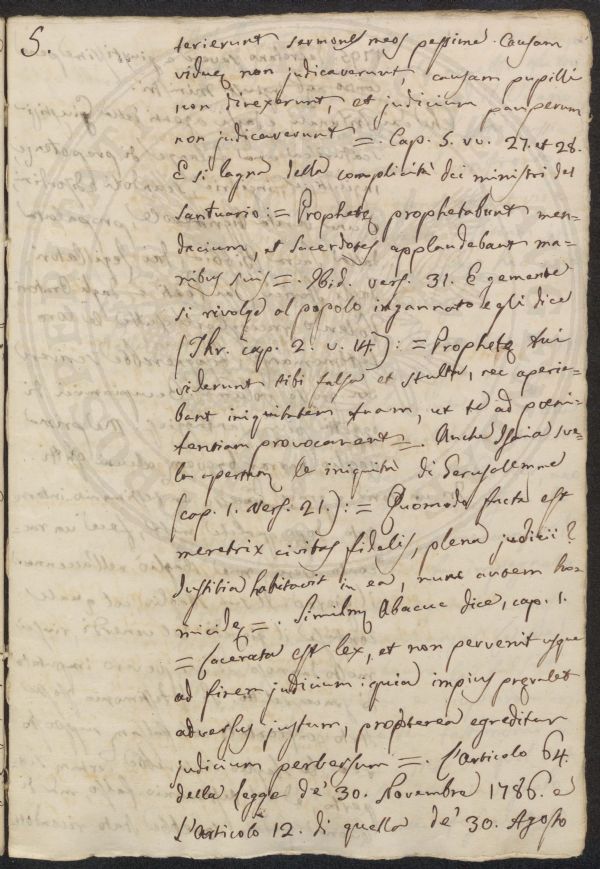 5.
terierunt sermones meos pessime. Causam
viduę non judicaverunt, causam pupilli
non direxerunt, et judicium pauperum
non judicaverunt =. Cap. 5. vv. 27. et 28.
E si lagna della complicità dei ministri del
Santuario: = Prophetę prophetabunt men=
dacium, et Sacerdotes applaudebant ma=
nibus suis =. Ibid. vers. 31. E gemente
si rivolge al popolo ingannato e gli dice
(Thr. cap. 2. v. 14.): = Prophetę tui
viderunt tibi falsa et stulta, nec aperie=
bant iniquitatem tuam, ut te ad pœni=
tentiam provocarent =. Anche Isaia sve=
la le iniquità di Gerusalemme
(cap. 1. vers. 21.): = Quomodo facta est
meretrix civitas fidelis, plena judicii?
Justitia habitavit in ea, nunc autem ho=
micidę =. Similmẽ Abacuc dice, cap. 1.
= Lacerata est lex, et non pervenit usque
ad finem judicium: quia impius pręvalet
adversus justum, propterea egreditur
judicium perversum =. L'Articolo 64.
della Legge de' 30. Novembre 1786. e
l'Articolo 12. di quella de' 30. Agosto